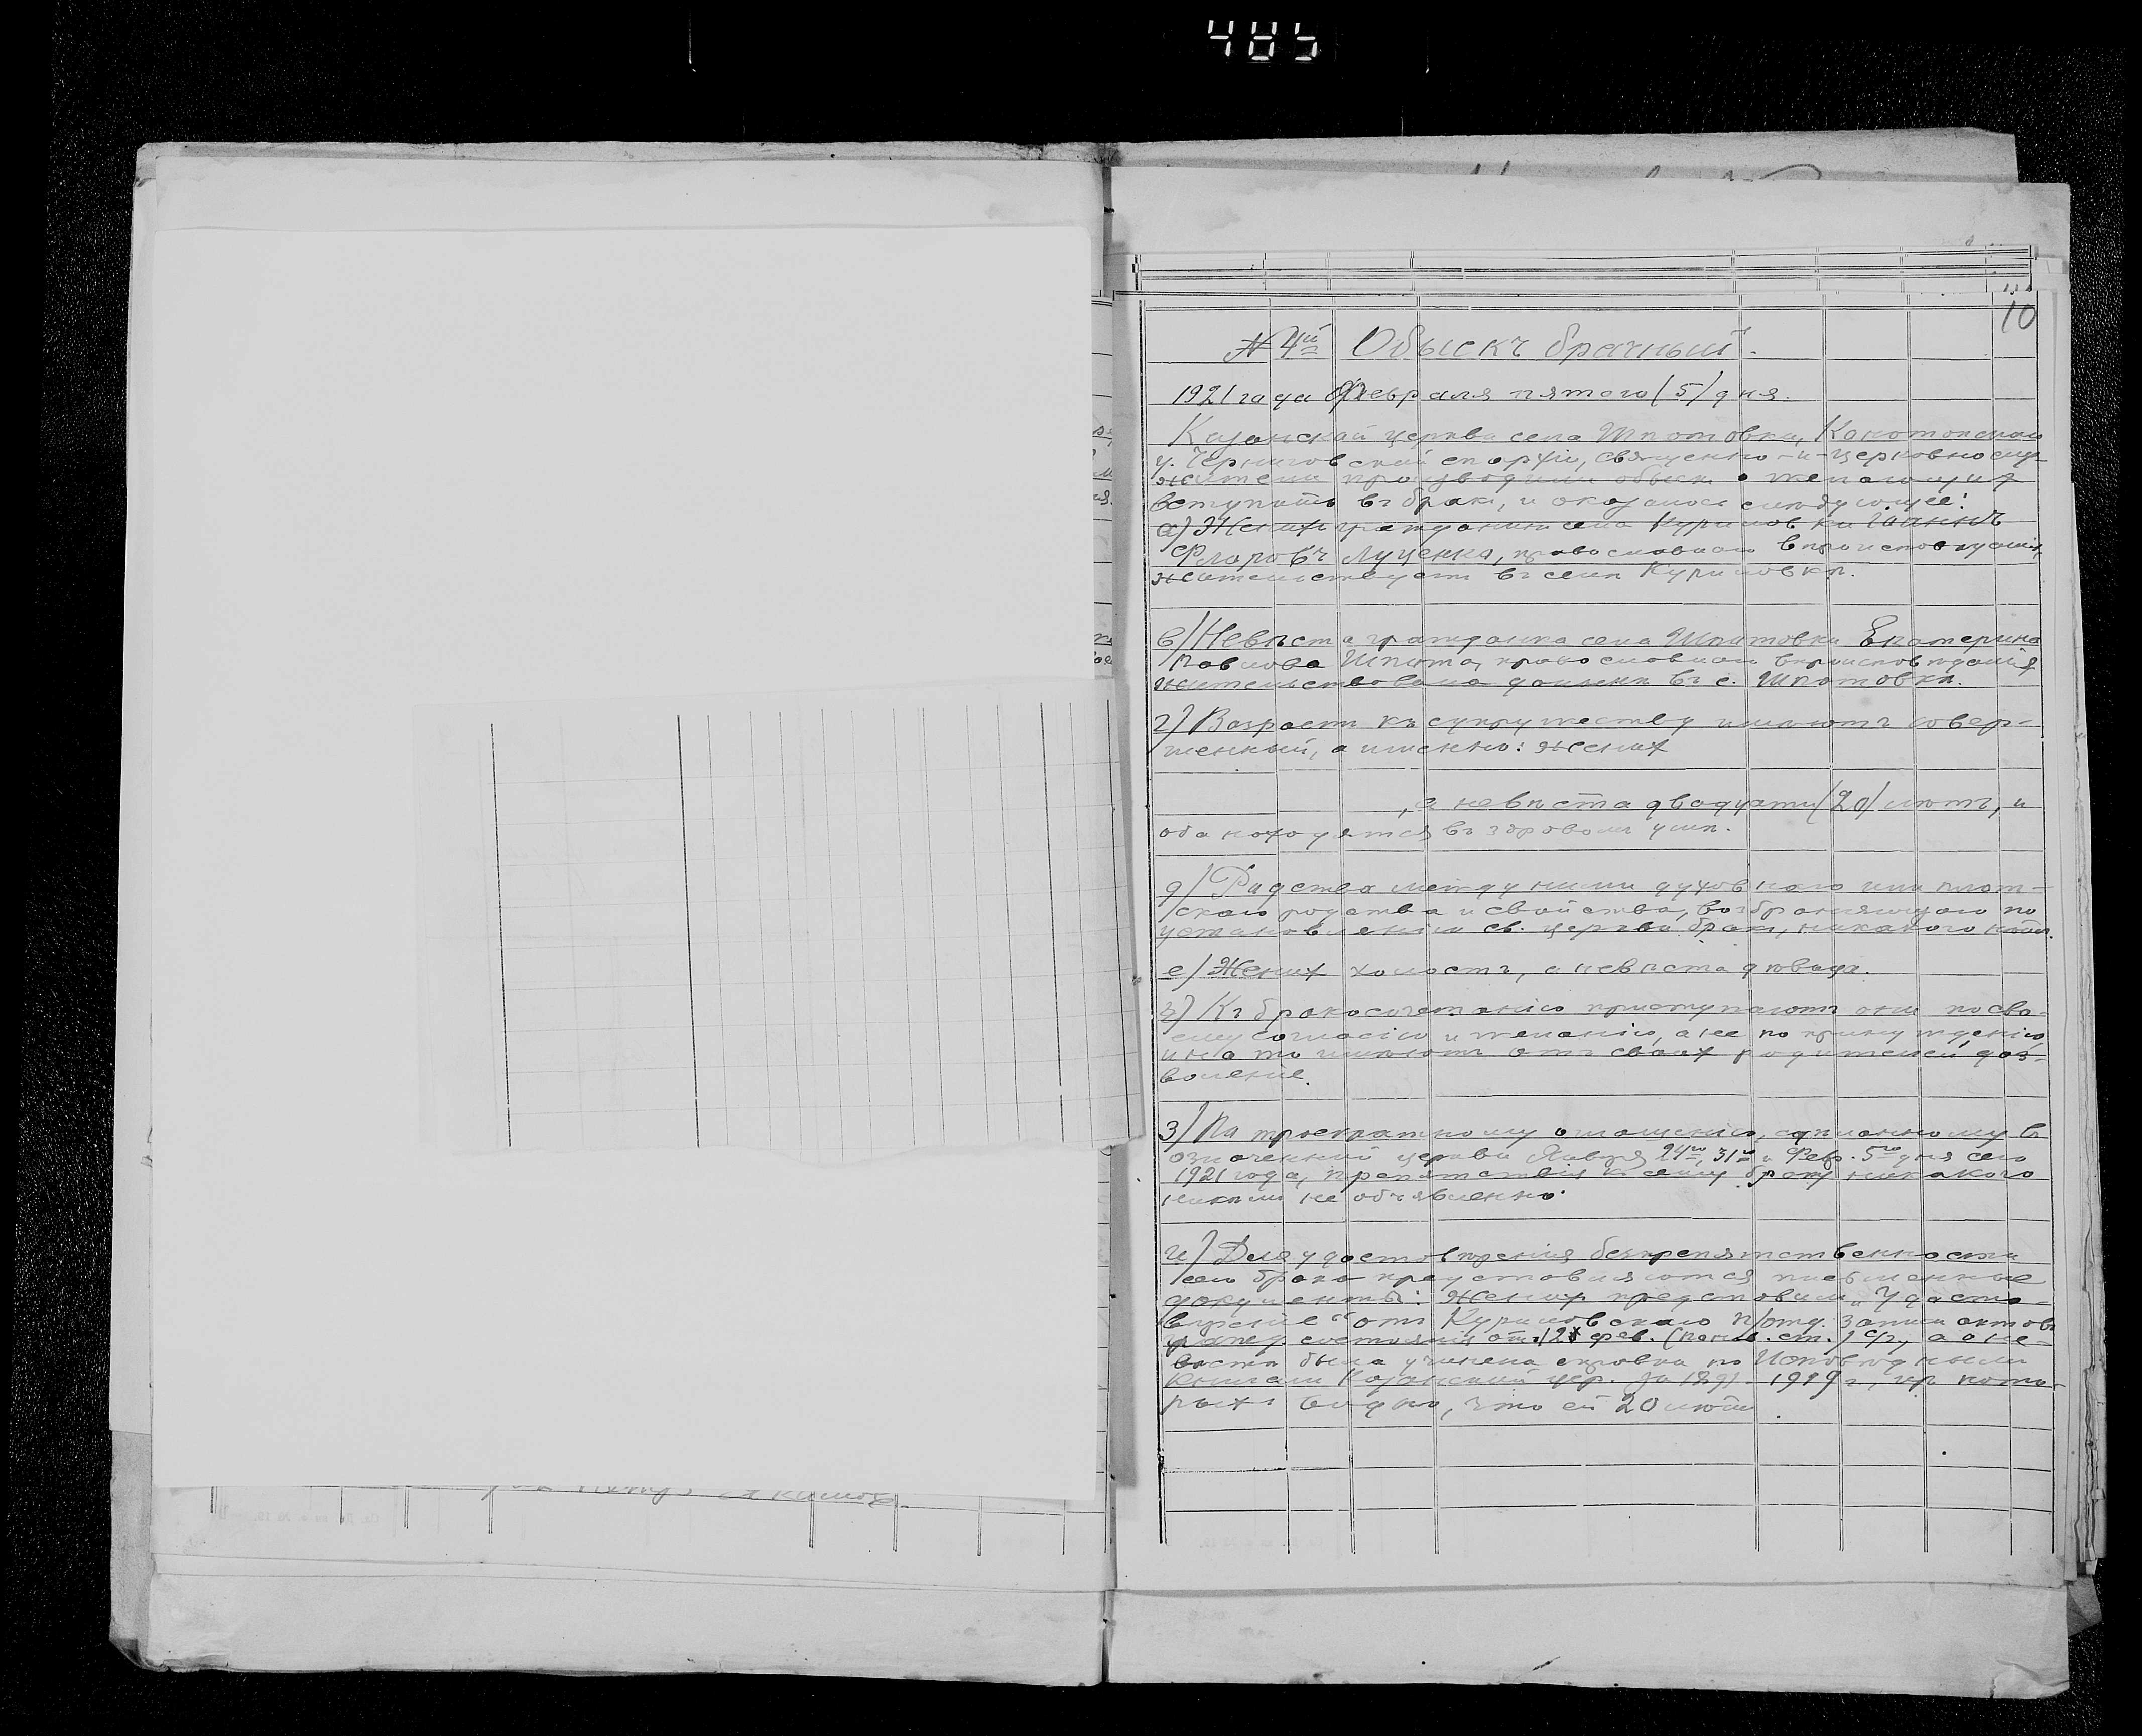 485
10
№ 4й Обыскъ брачный.
1921 года Февраля пятого (5) дня.
Казанской церкви села Шпотовки, Конотопского
у. Черниговской епархіи, священно-и-церковнослу-
жители производили обыск о желающих
вступить въ бракъ, и оказалось слѣдующее:
а) Женихъ гражданинъ села Куриловки
Флоровъ Луценко, православнаго вѣроисповѣданія,
жительствуетъ въ селѣ Куриловкѣ.
в) Невѣста гражданка села Шпотовки Екатерина
Павлова Шпота, православнаго вѣроисповѣданія,
жительствовала донынѣ въ с. Шпотовкѣ.
г) Возрастъ къ супружеству имѣютъ совер-
шенный, а именно: женихъ
, а невѣста двадцати (20) лѣтъ, и
оба находятся въ здравомъ умѣ.
д) Родства между ними духовнаго или плот-
скаго родства и свойства, возбраняющаго по
установленію св. церкви бракъ, никакого нѣтъ.
е) Женихъ холостъ, а невѣста дѣвица.
Къ бракосочетанію приступаютъ они по сво-
ему согласію и желанію, а не по принужденію,
и на то имѣютъ отъ своих родителей доз-
воленіе.
з) По троекратному оглашенію, сдѣланному въ
означенной церкви Января 24го, 31го и Фев. 5го дня сего
1921 года, препятствія къ сему браку никакого
никѣмъ не объявлено.
и) Для удостовѣренія безпрепятственности
сего брака представляются письменные
документы: женихъ представилъ „Удосто-
вѣреніе“ отъ Куриловскаго п/отд. записи актовъ
состоянія от 12 фев. ст.) а о не-
вѣстѣ была учинена справка по Исповѣднымъ
книгамъ Казанской цер. за 1919 г., из кото-
рыхъ видно, что ей 20 лѣтъ.